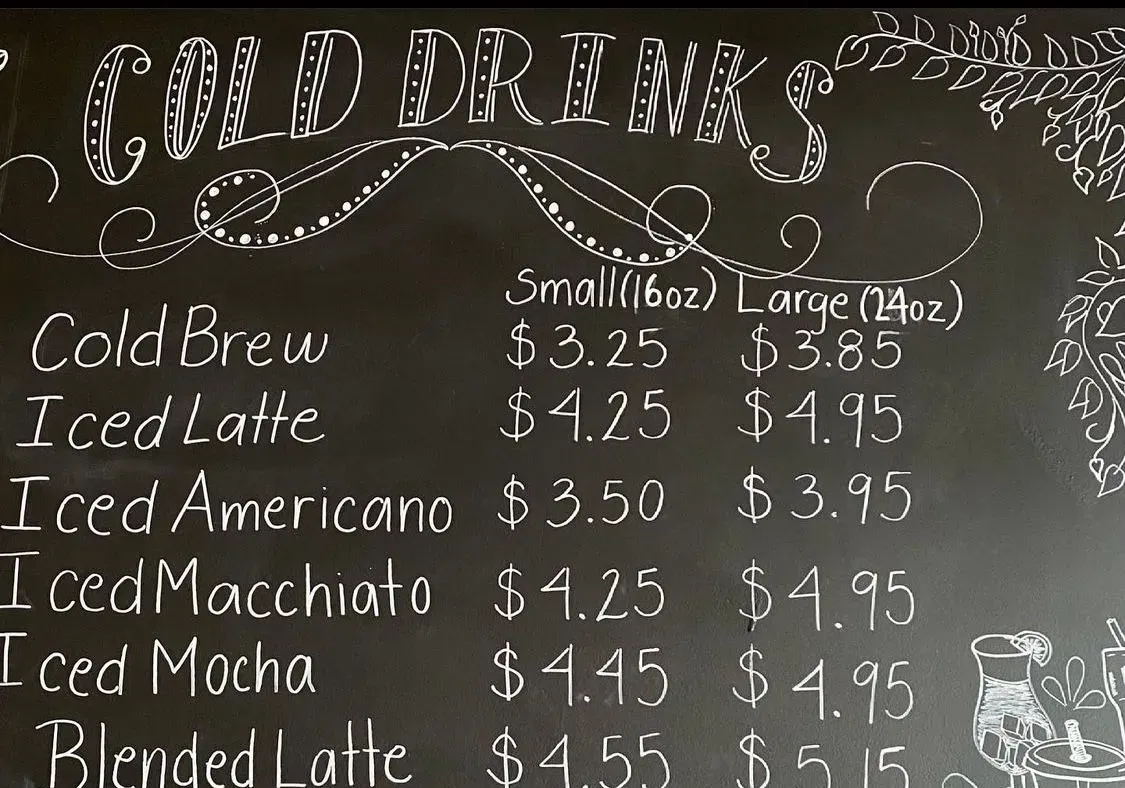 COLD DRINKS
Small (16oz) Large (24oz)
Cold Brew $3.25 $3.85
Iced Latte $4.25 $4.95
Iced Americano $3.50 $3.95
Iced Macchiato $4.25 $4.95
Iced Mocha $4.45 $4.95
Blended Latte $4.55 $5.15